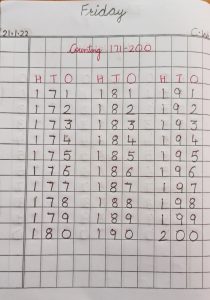 Friday
21.1.22 C.W
Counting 171-200
H T O H T O H T O
1 7 1 1 8 1 1 9 1
1 7 2 1 8 2 1 9 2
1 7 3 1 8 3 1 9 3
1 7 4 1 8 4 1 9 4
1 7 5 1 8 5 1 9 5
1 7 6 1 8 6 1 9 6
1 7 7 1 8 7 1 9 7
1 7 8 1 8 8 1 9 8
1 7 9 1 8 9 1 9 9
1 8 0 1 9 0 2 0 0